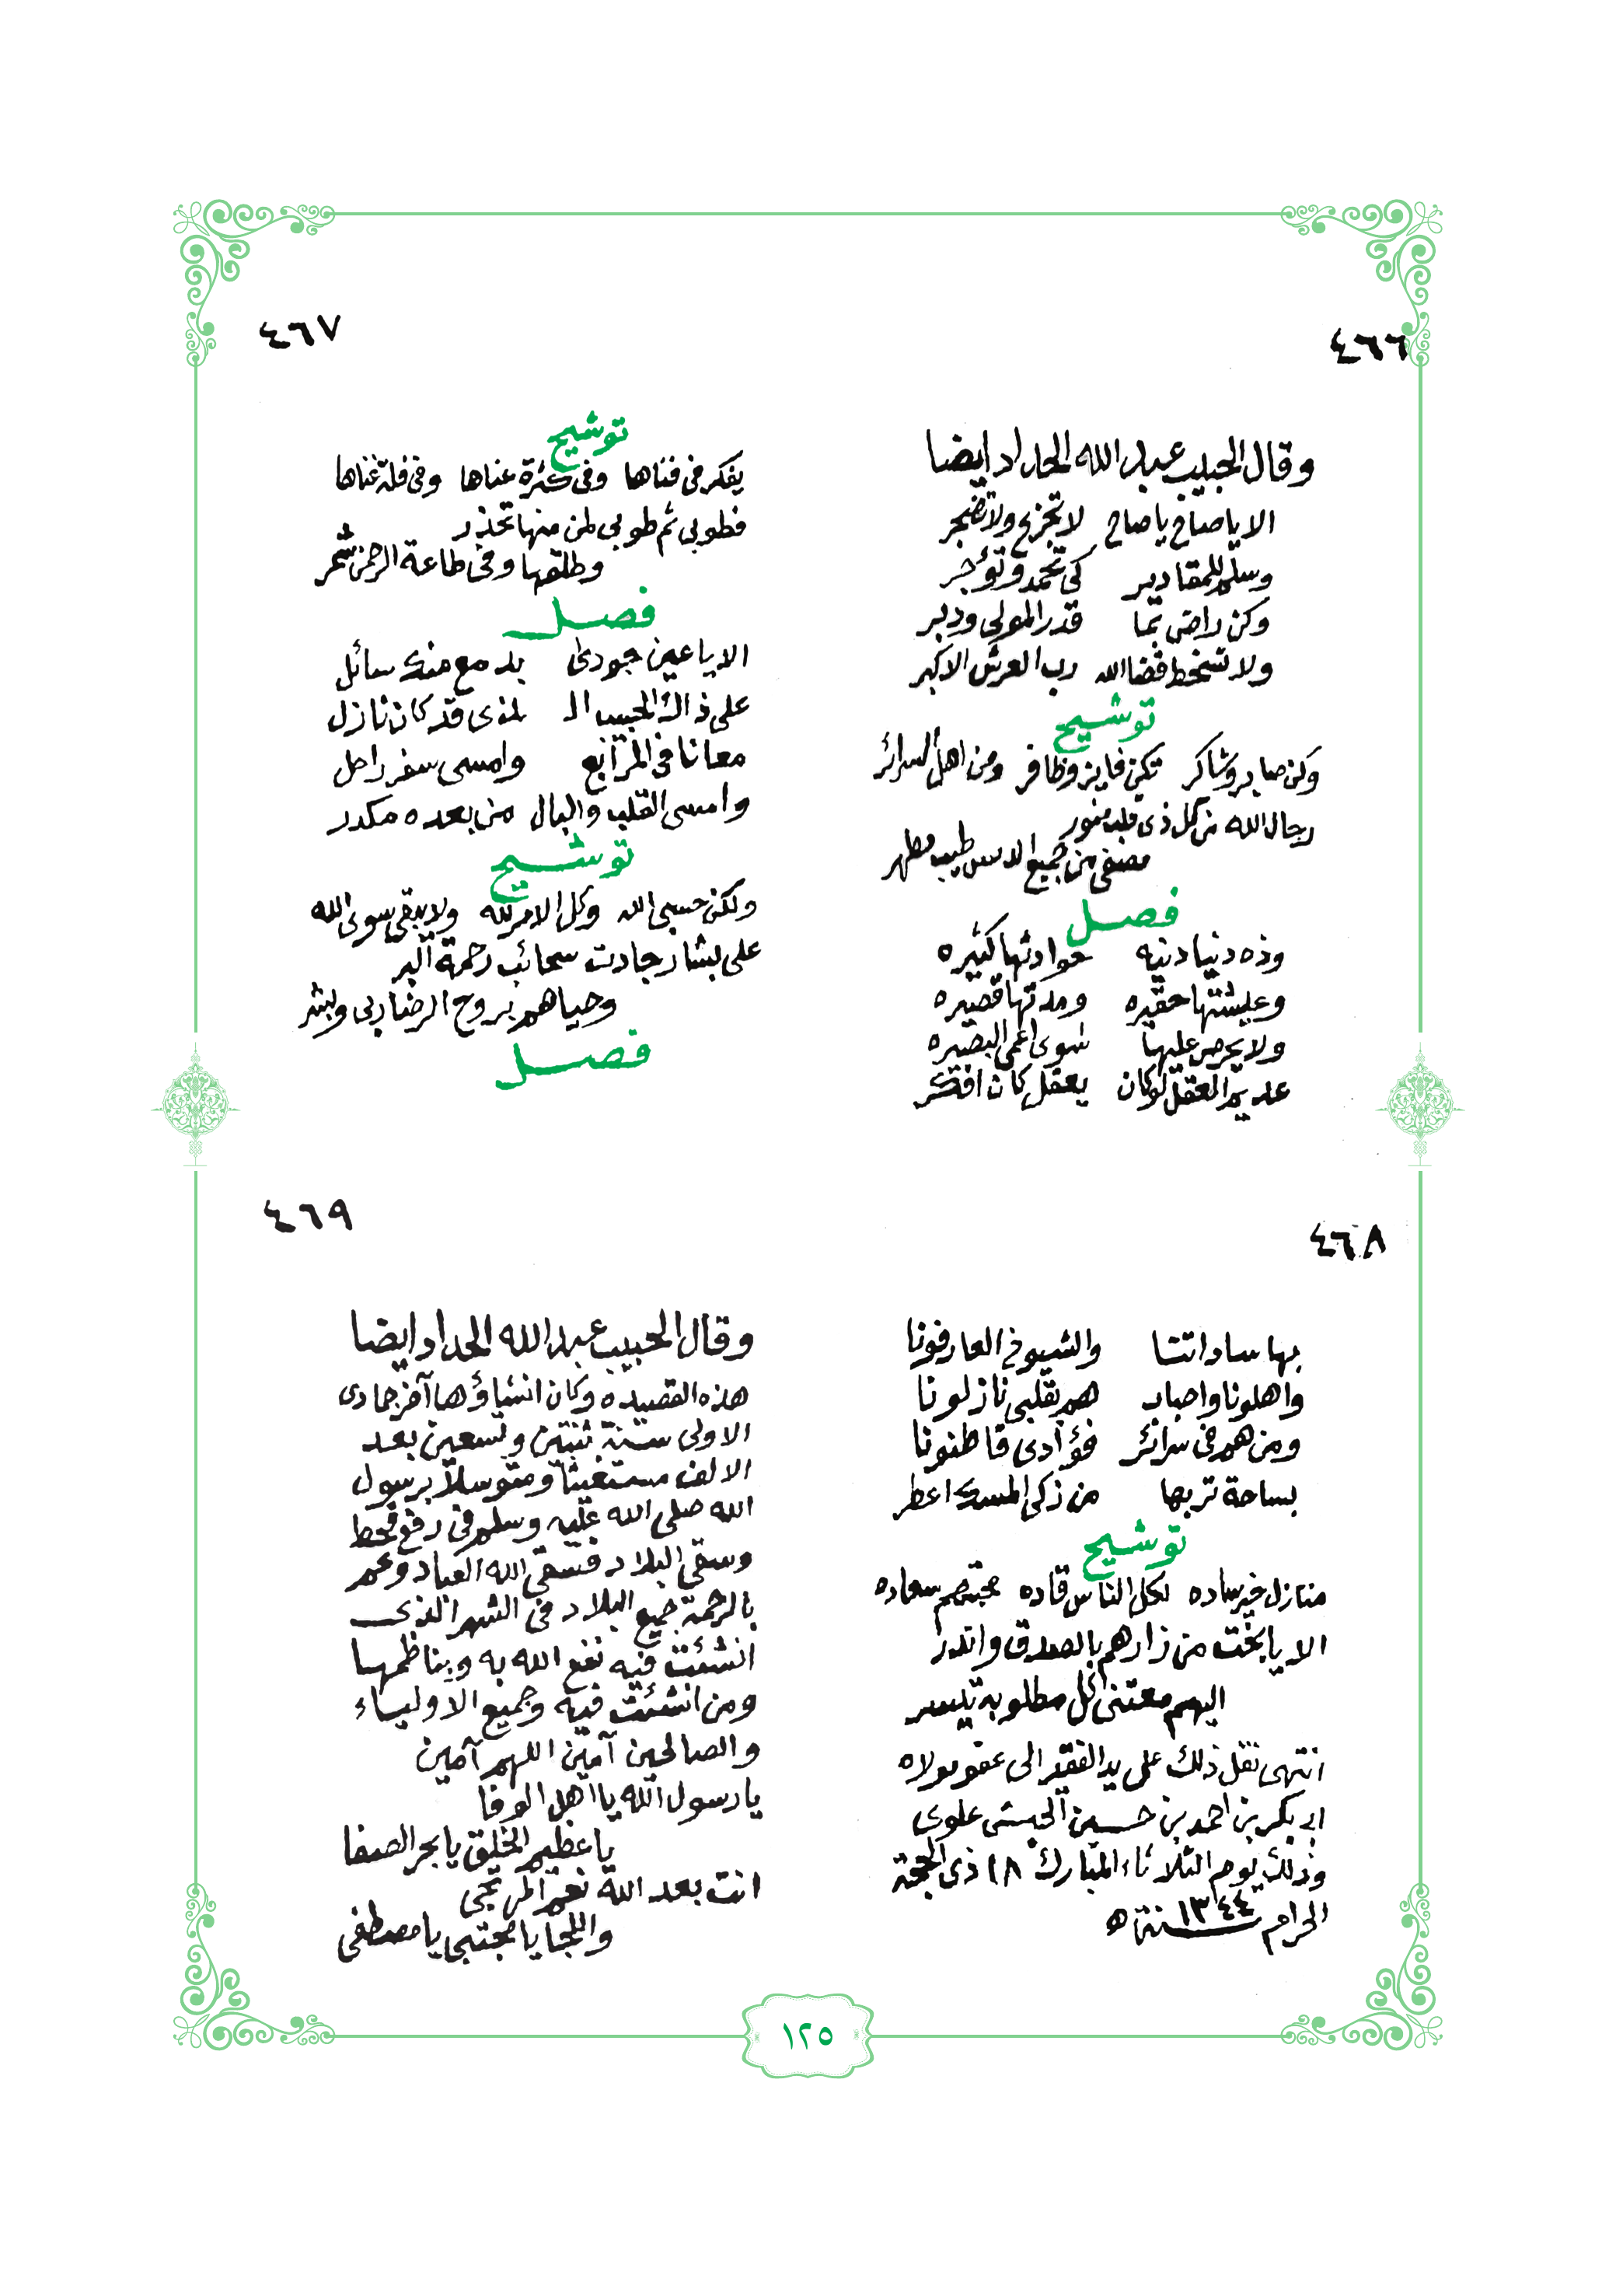 ٤٦٦
وقال الحبيب عبد الله الحداد ايضا
الا يا صاح يا صاح لا تجزع ولا تضجر
وسلم للمقادير كي تحمد وتؤجر
وكن راضي بما قدر المولى ودبر
ولا تسخط قضا الله رب العرش الاكبر
توشيح
وكن صابر وشاكر تكن فايز وظافر ومن اهل السرائر
رجال الله من كل ذي قلب منور
مصفى من جميع الدنس طيب مطهر
فصل
وذه دنيا دنيه حوادثها كثيره
وعيشتها حقيره ومدتها قصيره
ولا يحرص عليها سوى اعمى البصيره
عديم العقل لو كان يعقل كان افتكر
٤٦٧
توشيح
يفكر في فناها وفي كثرة عناها وفي قلة غناها
فطوبى ثم طوبى لمن منها تحذر
وطلقها وفي طاعة الرحمن شمر
فصل
الا يا عين جودي بدمع منك سائل
على ذاك الحبيب ال لذي قد كان نازل
معانا في المرابع وامسى سفر راحل
وامسى القلب والبال من بعده مكدر
توشيح
ولكن حسبي الله وكل الامر لله ولا يبقى سوى الله
على بشار جادت سحائب رحمة البر
وحياهم بروح الرضا ربي وبشر
فصل
٤٦٨
بها ساداتنا والشيوخ العارفونا
واهلونا واحباب هم بقلبي نازلونا
ومن هم في سرائر فؤادي قاطنونا
بساحة تربها من زكي المسك اعطر
توشيح
منازل خير ساده لكل الناس قاده محبتهم سعاده
الا يا بخت من زارهم بالصدق واندر
اليهم معتني كل مطلوبه تيسر
انتهى نقل ذلك على يد الفقير الى عفو مولاه
ابي بكر بن احمد بن حسين الحبشي علوي
وذلك يوم الثلاثاء المبارك ١٨ ذي الحجة
الحرام سنة ١٣٤٤ ه
٤٦٩
وقال الحبيب عبد الله الحداد ايضا
هذه القصيده وكان انشاؤها آخر جمادى
الاولى سنة ثنتين وتسعين بعد
الالف مستغيثا ومتوسلا برسول
الله صلى الله عليه وسلم في رفع قحط
وسقي البلاد فسقى الله العباد وعم
بالرحمة جميع البلاد في الشهر الذي
انشئت فيه نفع الله به وبناظمها
ومن انشئت فيه وجميع الاولياء
والصالحين آمين اللهم آمين
يا رسول الله يا اهل الوفا
يا عظيم الخلق يا بحر الصفا
انت بعد الله نعم المرتجى
واللجا يا مجتبى يا مصطفى
١٢٥